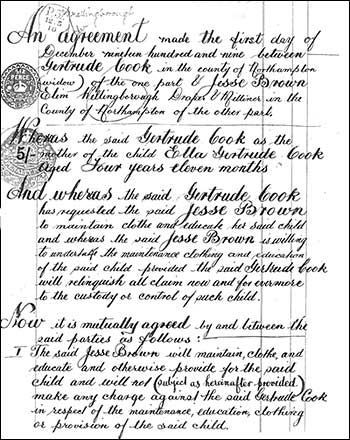 Wellingborough
12.5
10
An agreement made the first day of
December nineteen hundred and nine between
Gertrude Cook in the county of Northampton
(widow) of the one part & Jesse Brown
Elim Wellingborough Draper & Milliner in the
County of Northampton of the other part,
SIX PENCE
Whereas the said Gertrude Cook as the
5/-
mother of the child Ella Gertrude Cook
aged Four years eleven months
And whereas the said Gertrude Cook
has requested the said Jesse Brown
to maintain clothe and educate her said child
and whereas the said Jesse Brown is willing
to undertake the maintenance clothing and education
of the said child provided the said Gertrude Cook
will relinquish all claim now and for evermore
to the custody or control of such child.
Now it is mutually agreed by and between the
said parties as follows:
I The said Jesse Brown will maintain, clothe, and
educate and otherwise provide for the said
child and will not (subject as hereinafter provided)
make any charge against the said Gertrude Cook
in respect of the maintenance, education, clothing
or provision of the said child.